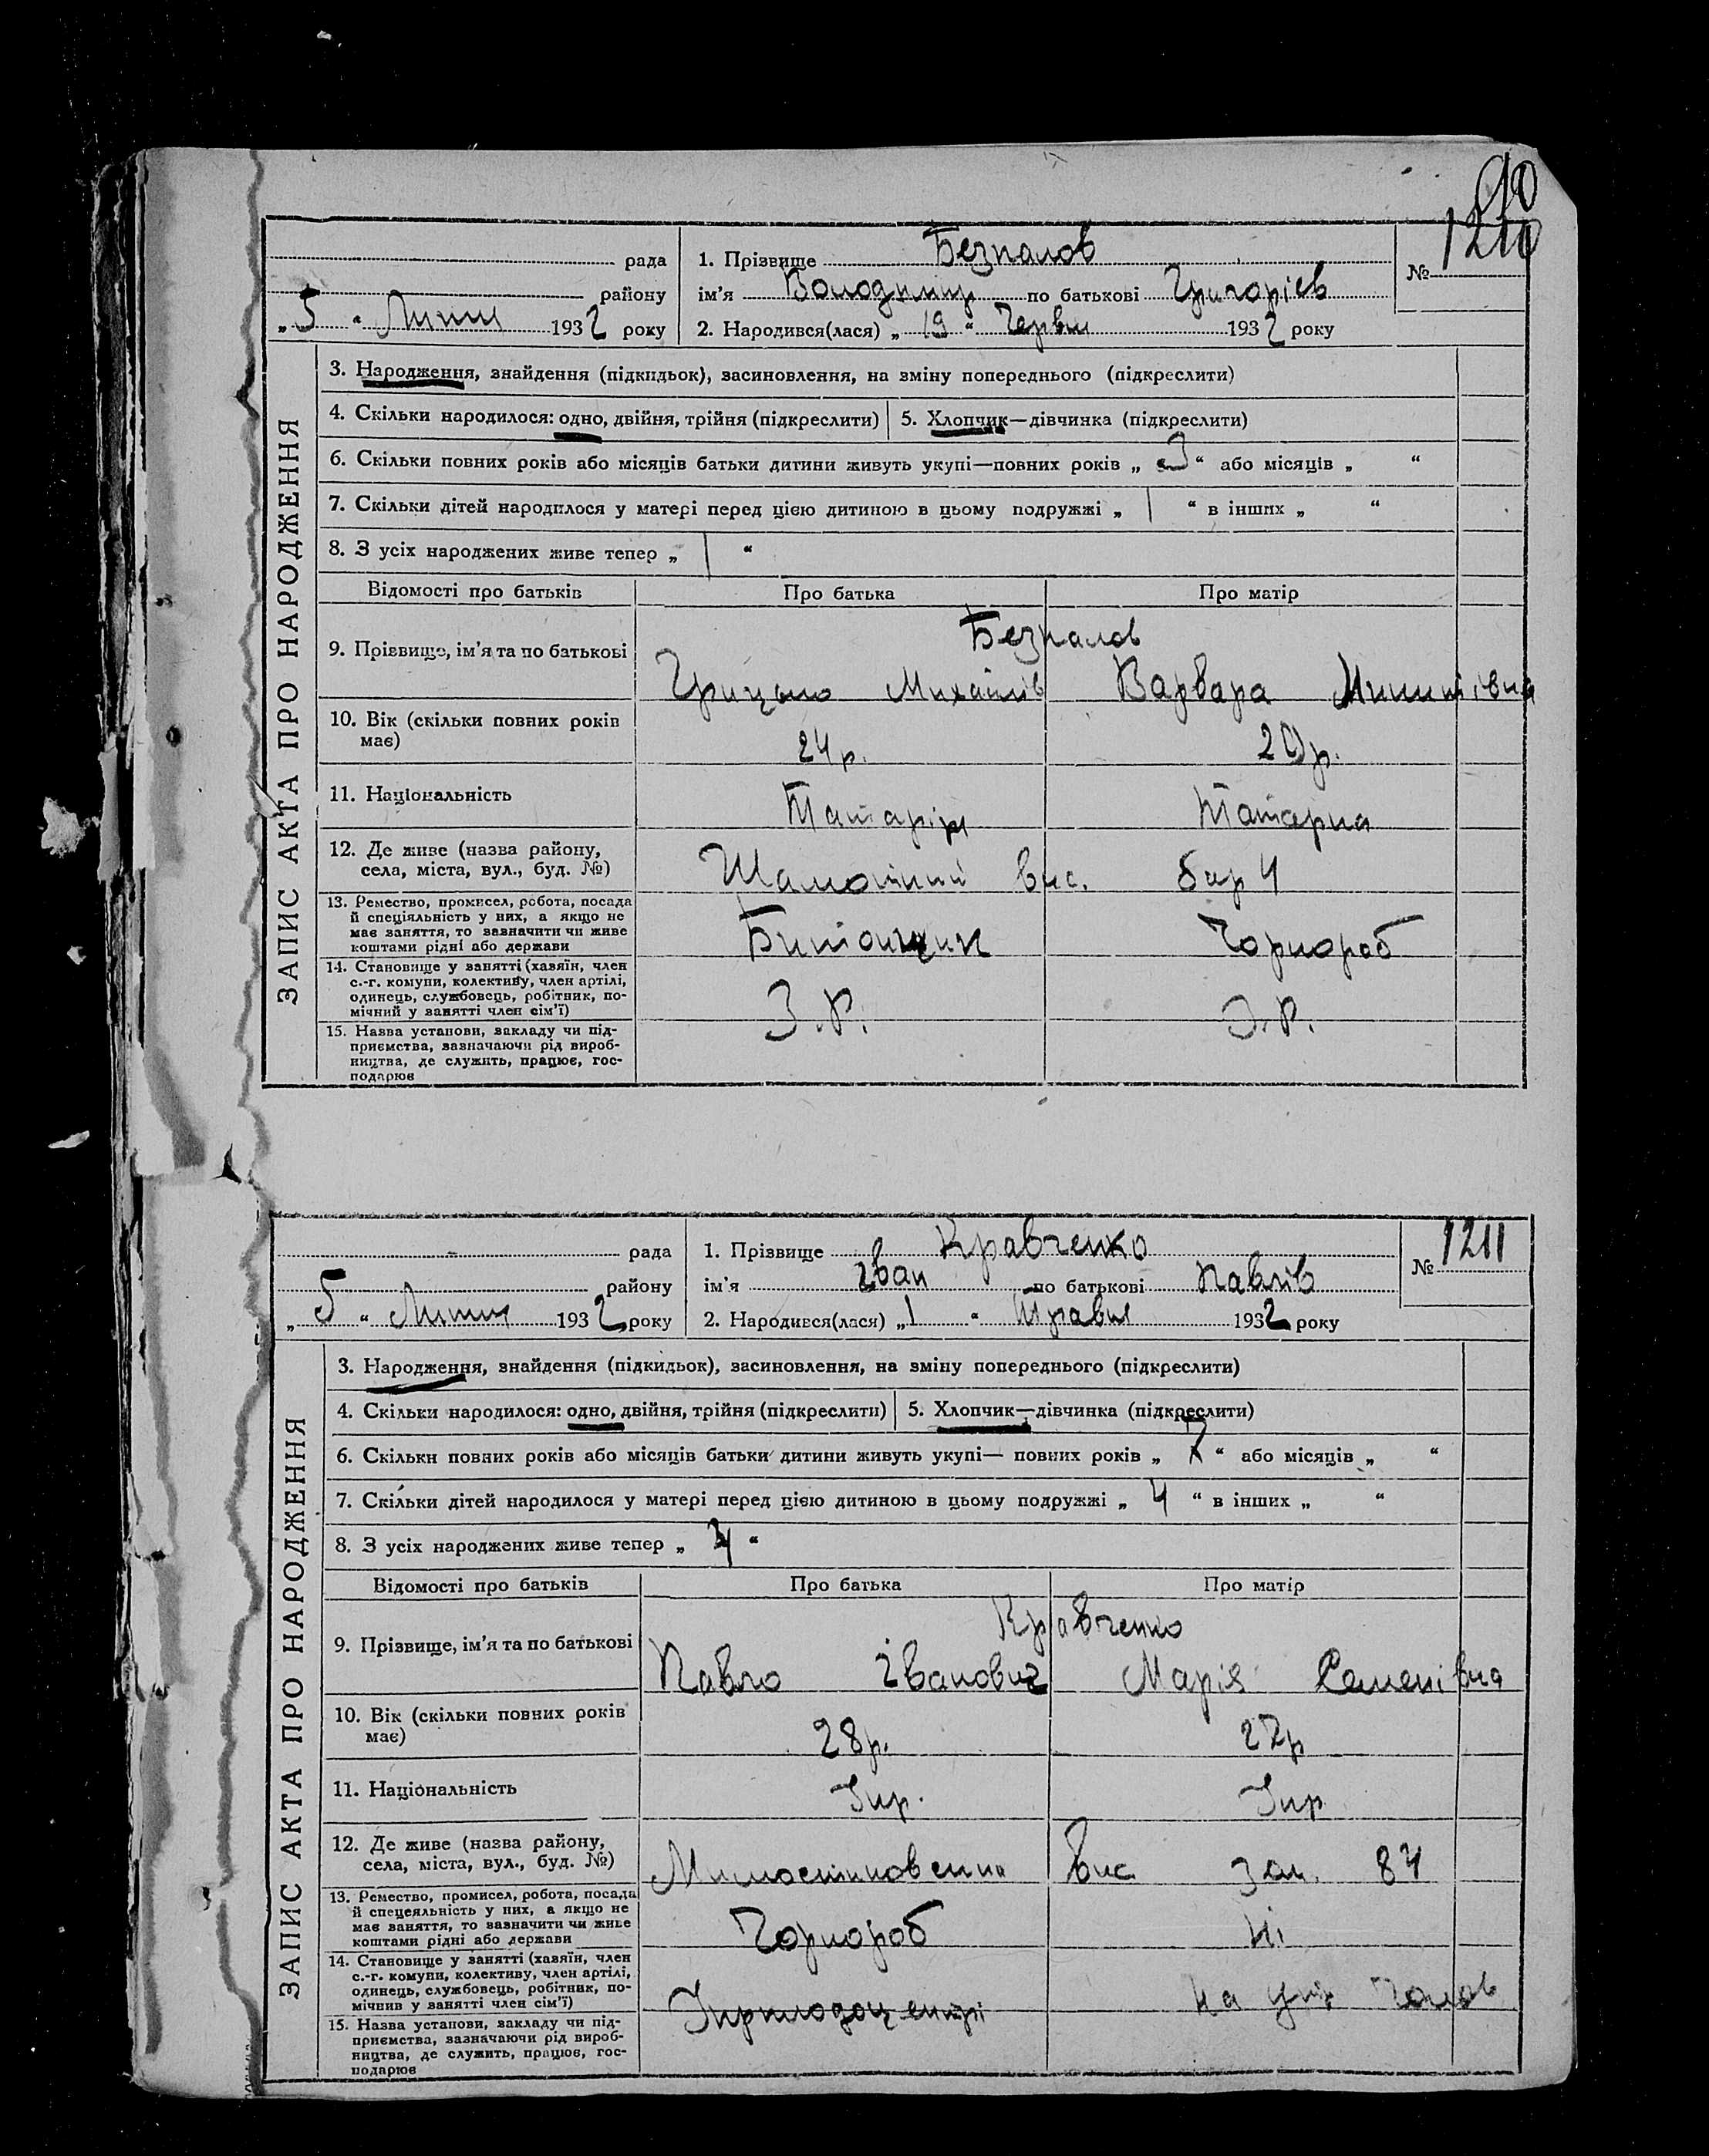 90
1210
рада 1. Прізвище Безпалов №
району ім'я Володимир по батькові Григоріев
„5“ Липня 1932 року 2. Народився(лася) „19“ Червня 1932 року
ЗАПИС АКТА ПРО НАРОДЖЕННЯ
3. Народження, знайдення (підкидьок), засиновлення, на зміну попереднього (підкреслити)
4. Скільки народилося: одно, двійня, трійня (підкреслити) 5. Хлопчик—дівчинка (підкреслити)
6. Скільки повних років або місяців батьки дитини живуть укупі—повних років „3“ або місяців „ “
7. Скільки дітей народилося у матері перед цією дитиною в цьому подружжі „1“ в інших „ “
8. З усіх народжених живе тепер „1“
Відомості про батьків Про батька Про матір
Безпалов
9. Прізвище, ім'я та по батькові Грицько Михайлів Варвара
10. Вік (скільки повних років
має) 24 р. 20 р.
11. Національність Татарін Татарка
12. Де живе (назва району,
села, міста, вул., буд. №) вис. бар 4
13. Ремество, промисел, робота, посада
й спеціяльність у них, а якщо не
має заняття, то зазначити чи живе
коштами рідні або держави Битонщик Чорнороб
14. Становище у занятті (хазяїн, член
с.-г. комуни, колективу, член артілі,
одинець, службовець, робітник, по-
мічний у занятті член сім'ї) З.Р. З.Р.
15. Назва установи, закладу чи під-
приємства, зазначаючи рід вироб-
ництва, де служить, працює, гос-
подарює
рада 1. Прізвище Кравченко № 1211
району ім'я Іван по батькові Павлів
„5“ Липня 1932 року 2. Народився(лася) „1“ Травня 1932 року
ЗАПИС АКТА ПРО НАРОДЖЕННЯ
3. Народження, знайдення (підкидьок), засиновлення, на зміну попереднього (підкреслити)
4. Скільки народилося: одно, двійня, трійня (підкреслити) 5. Хлопчик—дівчинка (підкреслити)
6. Скільки повних років або місяців батьки дитини живуть укупі— повних років „7“ або місяців „ “
7. Скільки дітей народилося у матері перед цією дитиною в цьому подружжі „4“ в інших „ “
8. З усіх народжених живе тепер „ “
Відомості про батьків Про батька Про матір
Кравченко
9. Прізвище, ім'я та по батькові Павло Іванович Марія Семенівна
10. Вік (скільки повних років
має) 28 р. 27 р
11. Національність Укр. Укр
12. Де живе (назва району,
села, міста, вул., буд. №) вис зем. 84
13. Ремество, промисел, робота, посада
й спецеяльність у них, а якщо не
має заняття, то зазначити чи живе
коштами рідні або держави Чорнороб Ні
14. Становище у занятті (хазяїн, член
с.-г. комуни, колективу, член артілі,
одинець, службовець, робітник, по-
мічнив у занятті член сім'ї) на утр. чолов
15. Назва установи, закладу чи під-
приємства, зазначаючи рід вироб-
ництва, де служить, працює, гос-
подарює